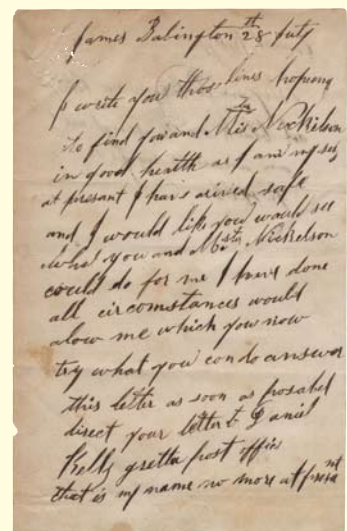 James Babington 28th July
I write you thos lines hopeing
to find you and Mr Nickilson
in good health as I am my self
at presant I have arived safe
and I would like you would see
what you and Mstr Nickelson
could do for me I have done
all circomstances would
alow me which you now
try what you con do answer
this letter as soon as prosabel
direct your letter to Daniel
Kelly gretta post offis
that is my name no more at presant